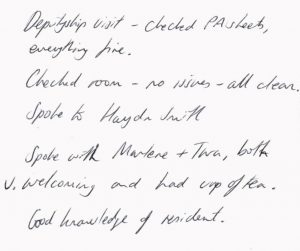 Deputyship visit - checked PA sheets,
everything fine.
Checked room - no issues - all clean.
Spoke to Haydn Smith
Spoke with Marlene + Tina, both
v. welcoming and had cup of tea.
Good knowledge of resident.